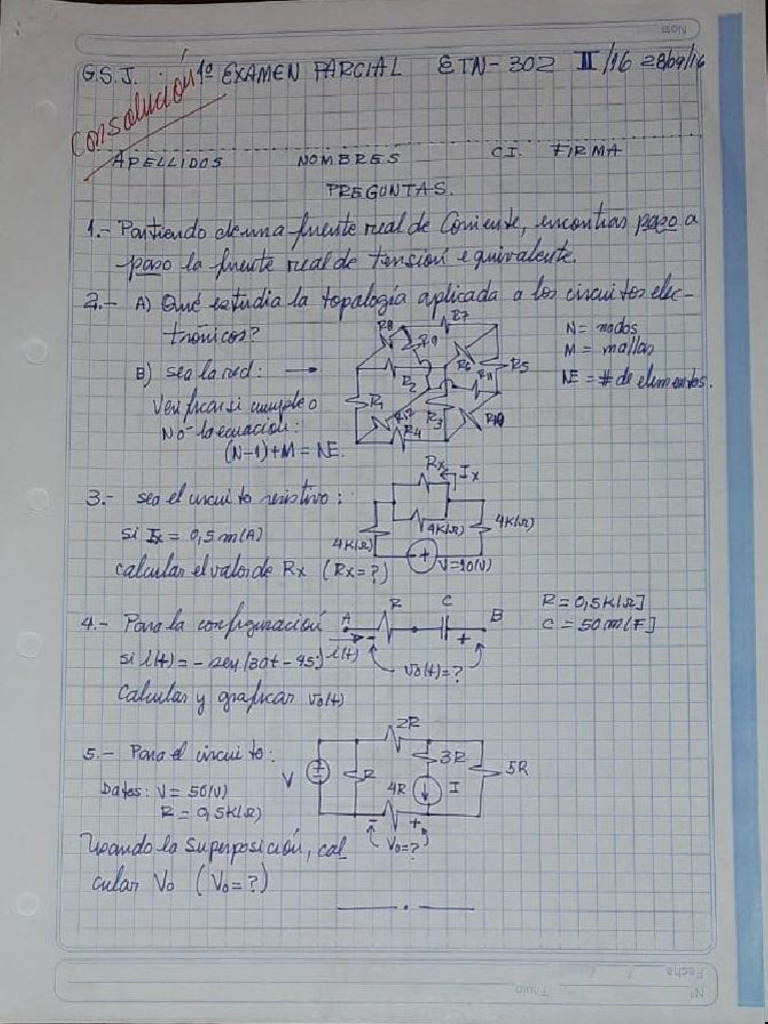 G.S.J. 1º EXAMEN PARCIAL ETN-302 II/16 28/09/16
Con solución
APELLIDOS NOMBRES C.I. FIRMA
PREGUNTAS.
1.- Partiendo de una fuente real de Corriente, encontrar paso a
paso la fuente real de tensión equivalente.
2.- A) Qué estudia la topología aplicada a los circuitos elec-
trónicos?
B) sea la red:
Verificar si cumple o
No la ecuación:
(N-1)+M = NE.
R8 R9 R7
R2 R6 R5
R1 R11
R12 R3 R10
R4
N = nodos
M = mallas
NE = # de elementos.
3.- sea el circuito resistivo:
si Ix = 0,5 m(A)
calcular el valor de Rx (Rx=?)
Rx Ix
4K(Ω) 4K(Ω) 4K(Ω)
- + V=20(V)
4.- Para la configuración
si i(t) = - sen (30t - 45º)
Calcular y graficar vo(t)
A R C B
i(t) - +
vo(t)=?
R = 0,5K[Ω]
C = 50 m[F]
5.- Para el circuito:
Datos: V = 50(V)
R = 0,5K(Ω)
Usando la superposición, cal
cular Vo (Vo=?)
2R
V R 3R 5R
4R I
- +
Vo=?
Nota
Fecha / /
Nº Título